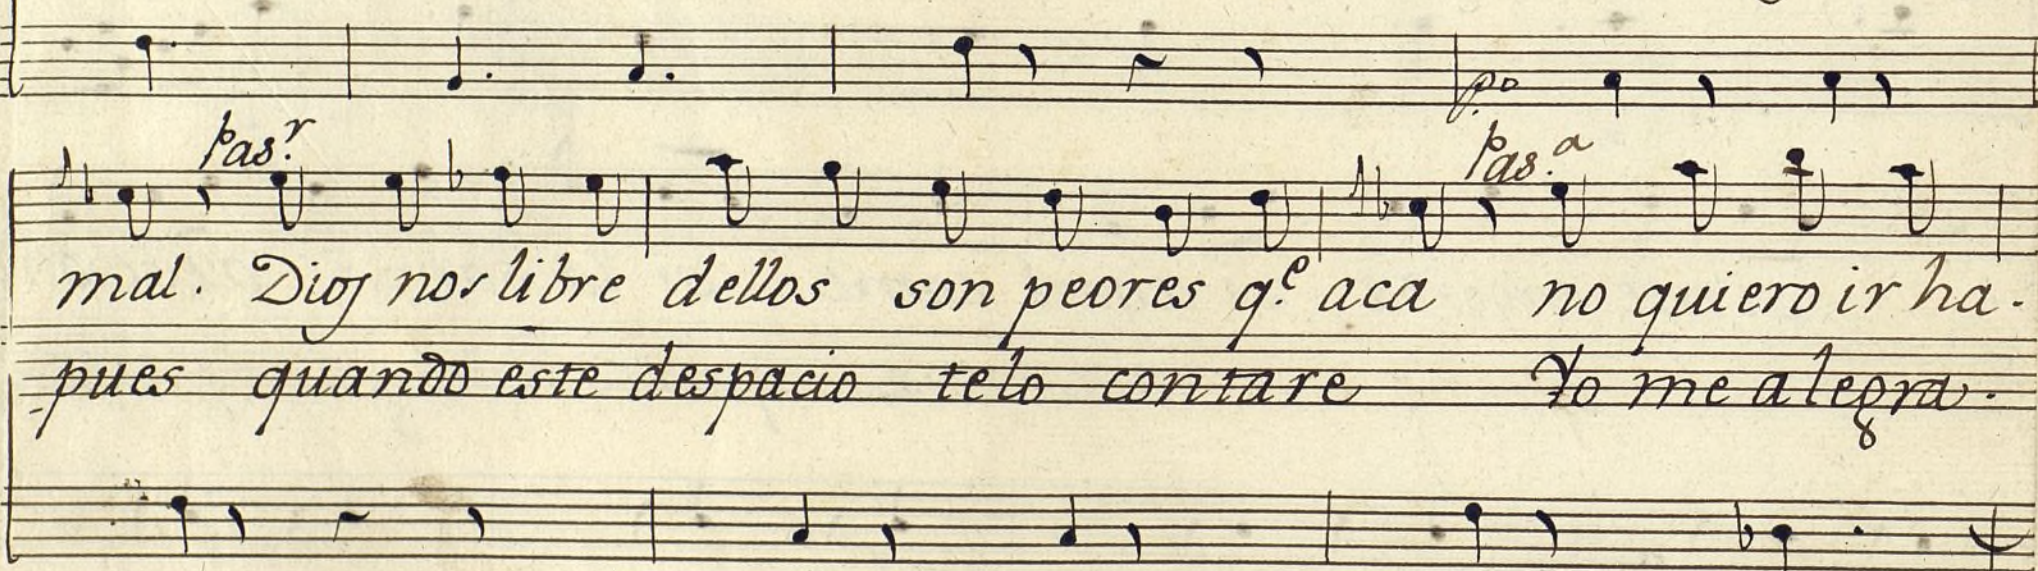 po
Pas.r Pas.a
mal. Dios nos libre dellos son peores q.e aca no quiero ir ha-
pues quando este despacio telo contare Yo me alegra-